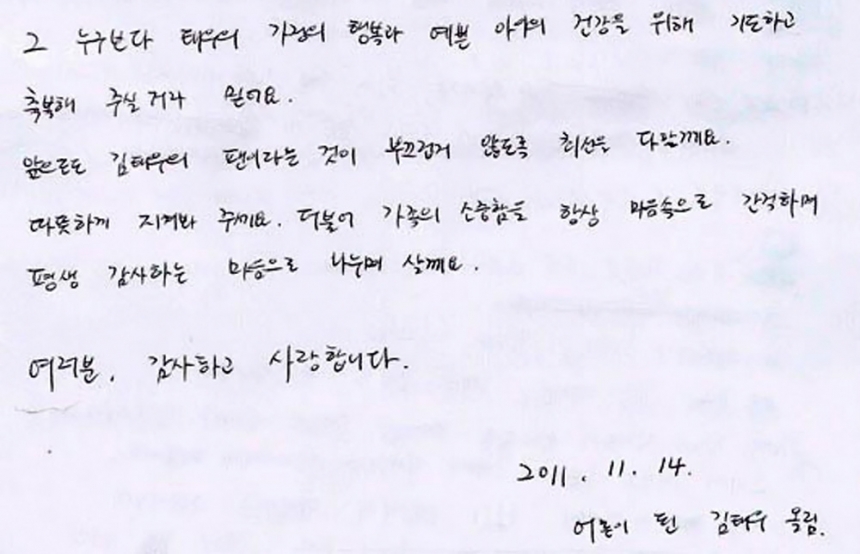 그 누구보다 태우의 가정의 행복과 예쁜 아이의 건강을 위해 기도하고
축복해 주실거라 믿어요.
앞으로도 김태우의 팬이라는 것이 부끄럽게 않도록 최선을 다할께요.
따뜻하게 지켜봐 주세요. 더불어 가족의 소중함을 항상 마음속으로 간직하며
평생 감사하는 마음으로 나누며 살께요.
여러분, 감사하고 사랑합니다.
2011. 11. 14.
어른이 된 김태우 올림.